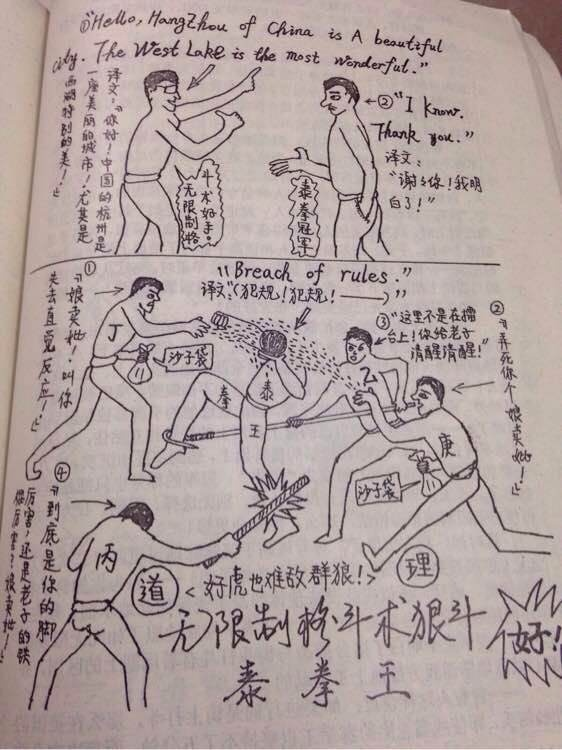 ①"Hello, HangZhou of China is A beautiful
city. The West Lake is the most Wonderful."
译文:"你好!中国的杭州是
一座美丽的城市!尤其是
西湖特别的美!"
无限制格
斗术好手。
泰拳冠军
②"I know.
Thank you."
译文:
"谢々你!我明
白了!"
"Breach of rules."
译文:"(犯规!犯规!——)"
①
"娘卖妣!叫你
失去直觉反应!"
丁
沙子袋
泰
拳
王
③"这里不是在擂
台上!你给老子
清醒清醒!"
乙
②
"弄死你个娘卖妣!"
庚
沙子袋
④
"到底是你的脚
厉害,还是老子的铁
棍厉害?娘卖妣!"
丙
道
<好虎也难敌群狼!>
理
无限制格斗术狠斗
好!
泰拳王